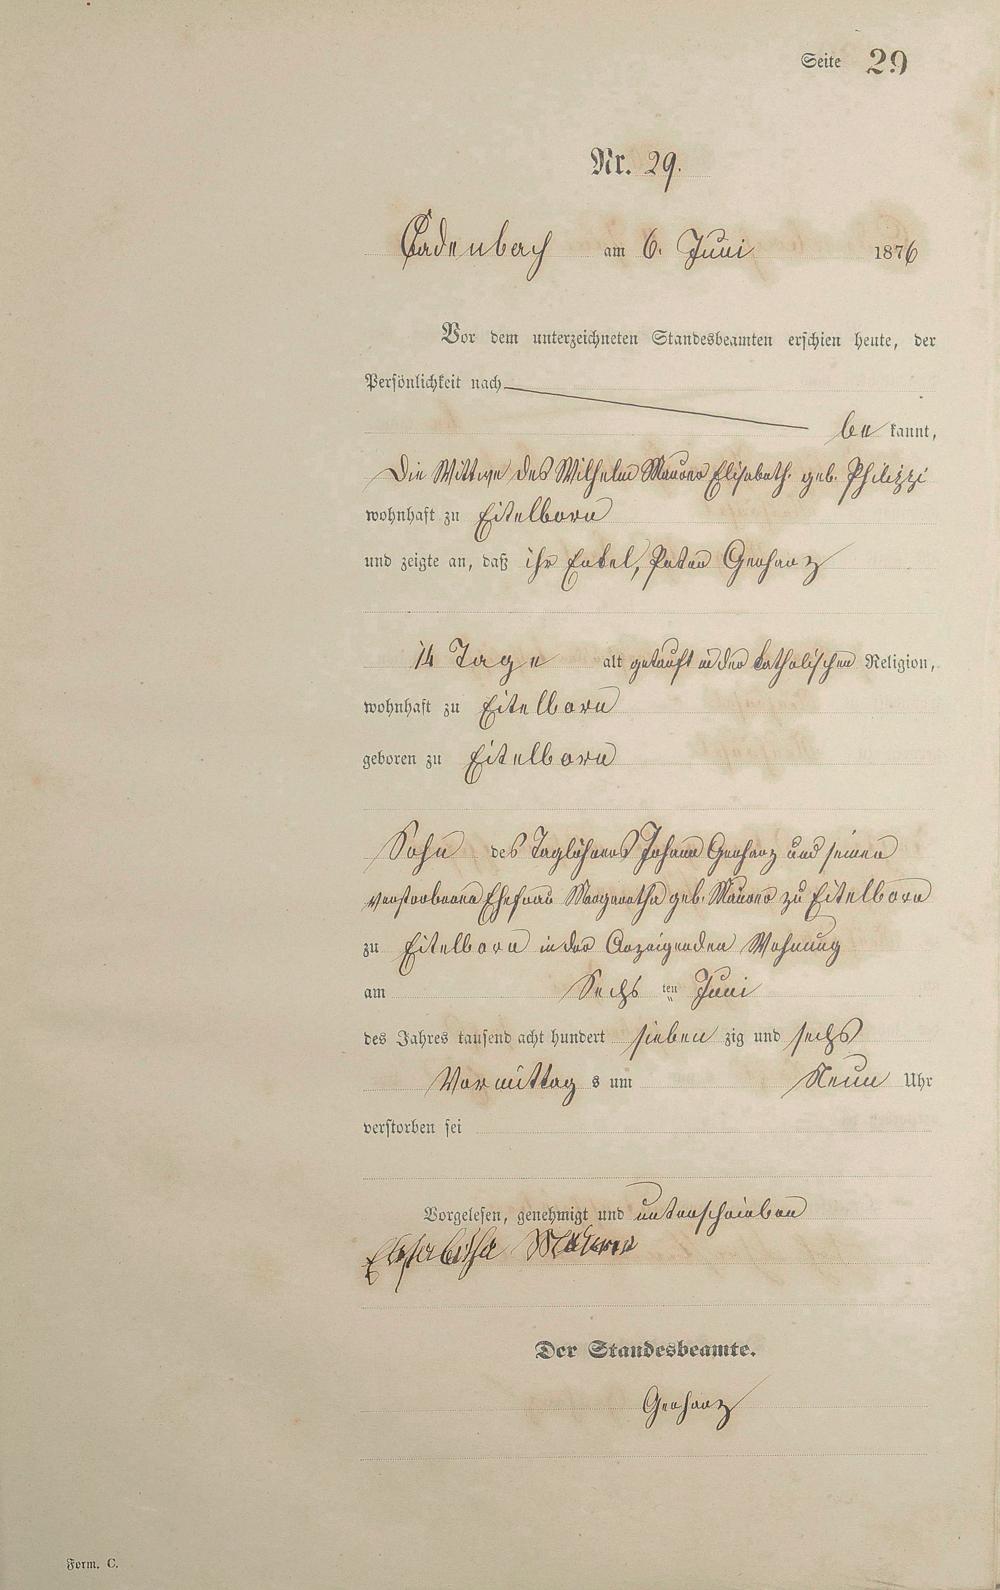 Seite 29
Nr. 29.
Cadenbach am 6. Juni 1876
Vor dem unterzeichneten Standesbeamten erschien heute, der
Persönlichkeit nach
be kannt,
Die Wittwe des Wilhelm Maurer Elisabeth geb. Philippi
wohnhaft zu Eitelborn
und zeigte an, daß ihr Enkel, Peter Gerharz
14 Tage alt getauft in der katholischen Religion,
wohnhaft zu Eitelborn
geboren zu Eitelborn
Sohn des Taglöhners Johann Gerharz und seiner
verstorbenen Ehefrau Margaretha geb. Maurer zu Eitelborn
zu Eitelborn in der Anzeigenden Wohnung
am Sechs ten Juni
des Jahres tausend acht hundert sieben zig und sechs
Vormittag s um Neun Uhr
verstorben sei
Vorgelesen, genehmigt und unterschrieben
Elisabetha
Der Standesbeamte.
Gerharz
Form. C.